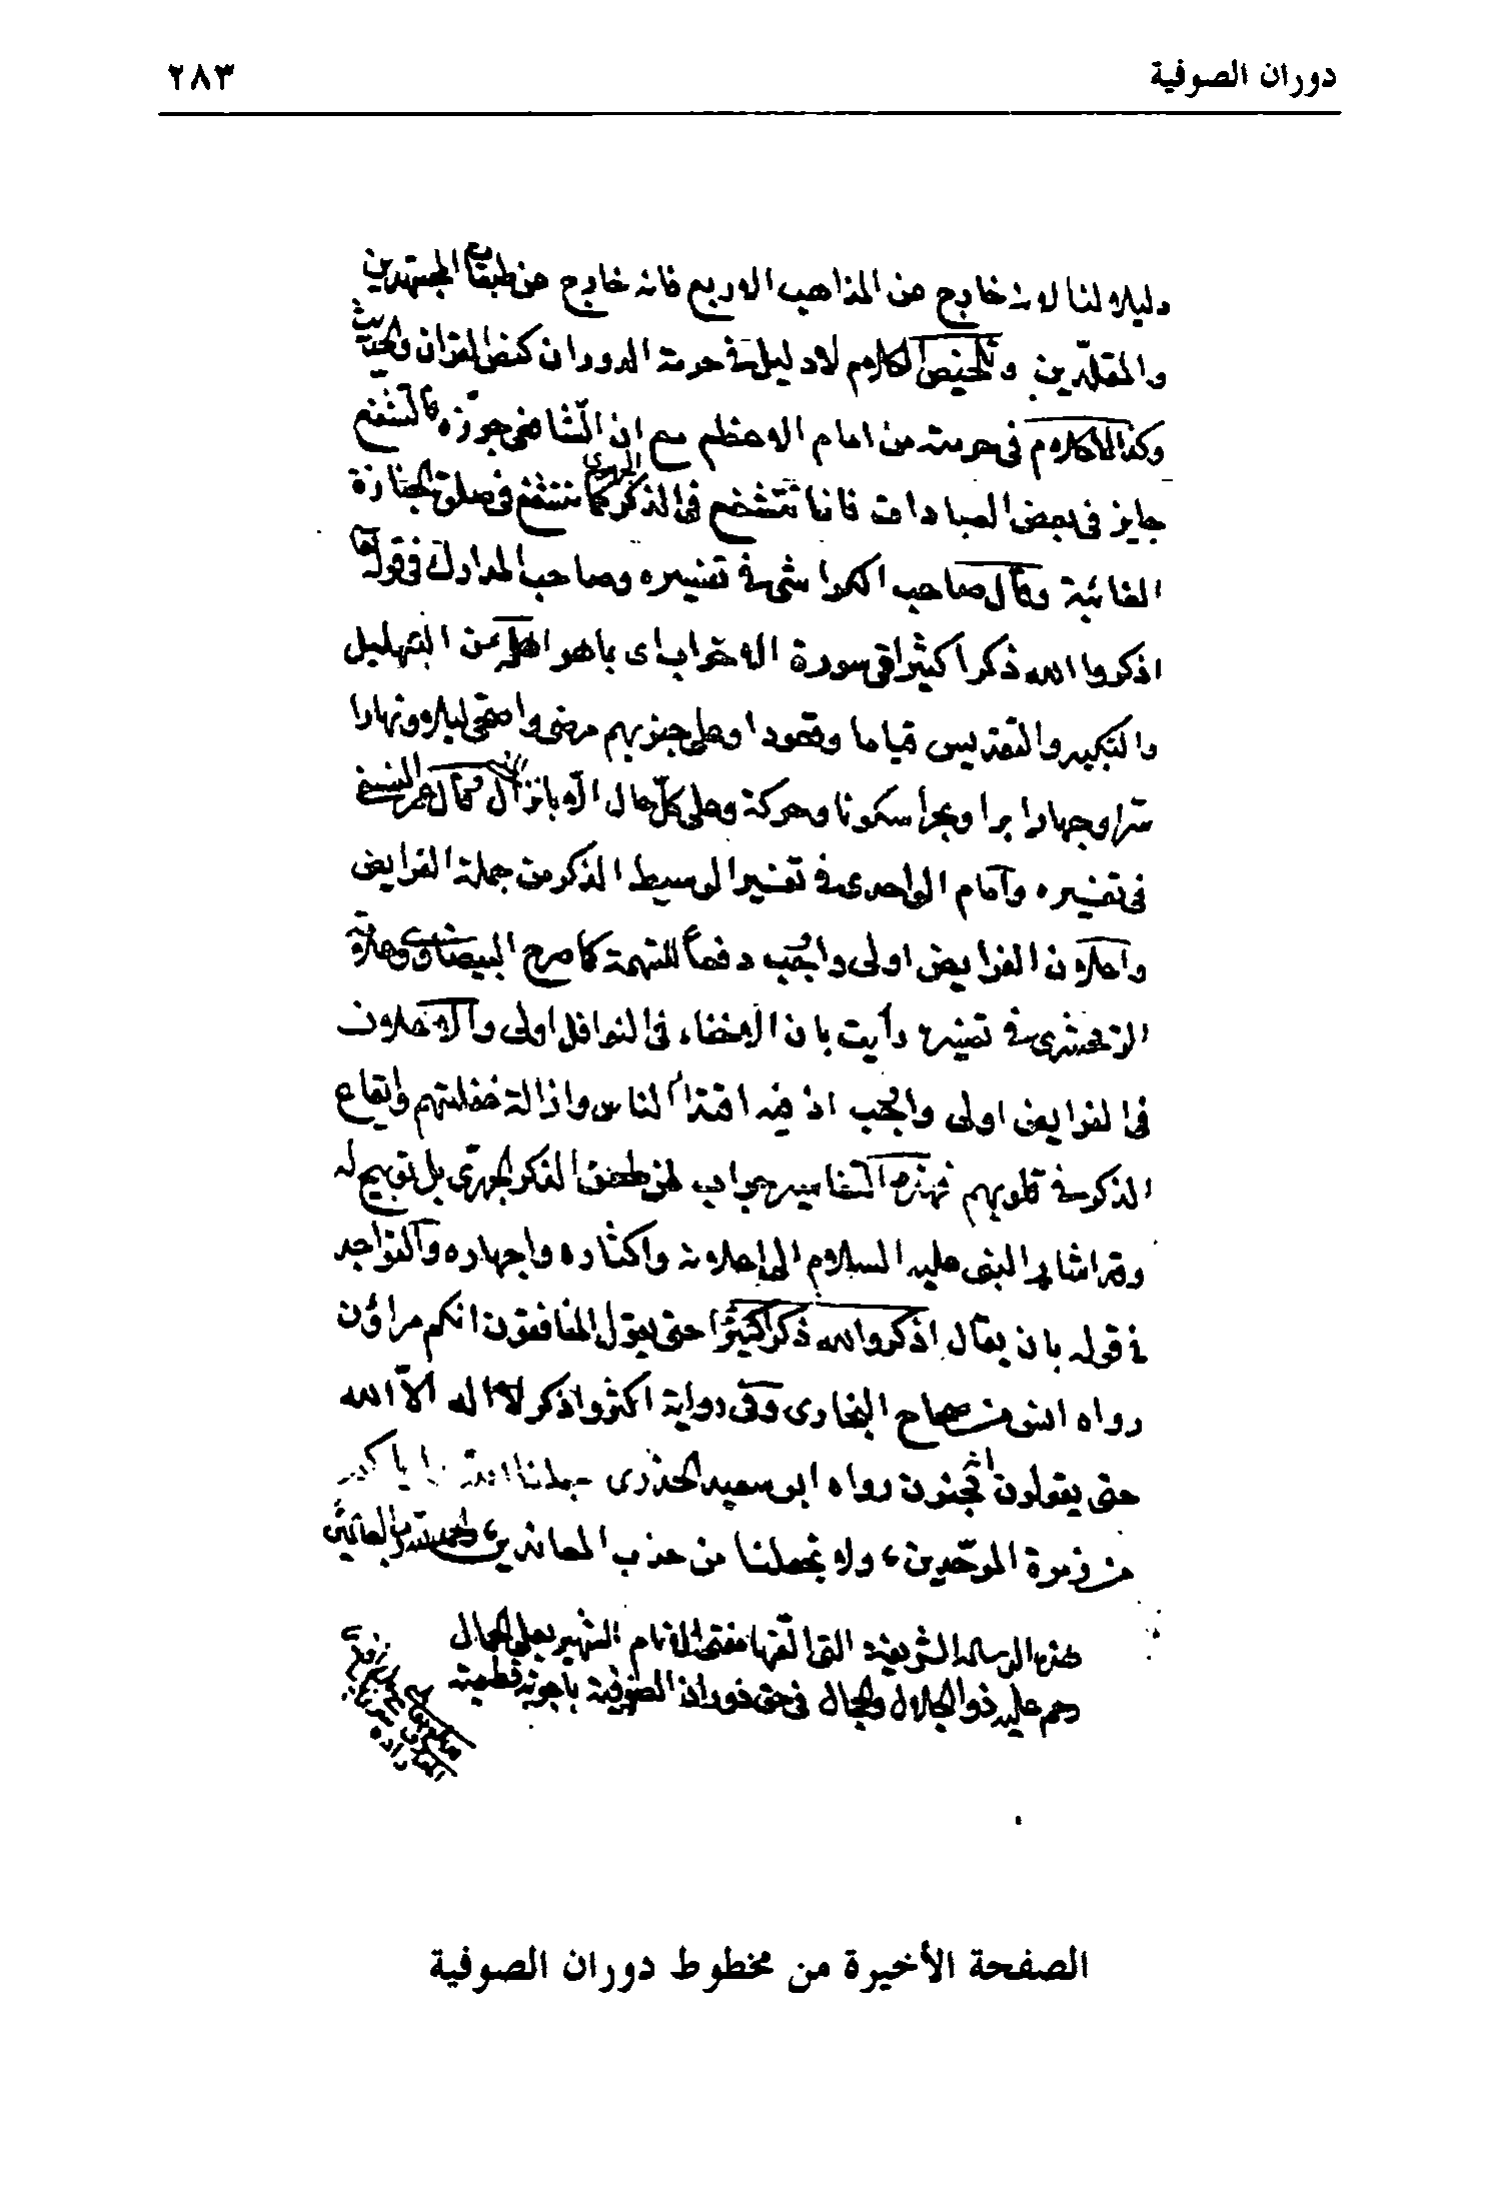 دوران الصوفية
٢٨٣
دليلا لنا لانه خارج عن المذاهب الاربع فانه خارج عن طبقات المجتهدين
والمقلدين وتلخيص الكلام لا دليل في حرمة الدوران كنص القران والحديث
وكذا لا كلام في حرمته من امام الاعظم مع ان الشافعي جوزه فالتشفع
جايز في بعض العبادات فانا نتشفع في الذكر الجهري كما نتشفع في صلوة الجنازة
الغائبة وقال صاحب الكواشي في تفسيره وصاحب المدارك في قوله تعا
اذكروا الله ذكرا كثيرا في سورة الاحزاب اى باهو اهله من التهليل
والتكبير والتقديس قياما وقعودا وعلى جنوبهم مرضى واصحى ليلا ونهارا
سرا وجهارا برا وبحرا سكونا وحركة وعلى كل حال الا بانزال وقال عمر النسفي
في تفسيره وامام الواحدى في تفسير الوسيط الذكر من جملة الفرايض
واعلان الفرايض اولى واجب دفعا للتهمة كما صرح البيضاوى وعلامة
الزمخشرى في تفسيره رأيت بان الاخفاء في النوافل اولى والاعلان
في الفرايض اولى واجب اذ فيه اقتدا الناس وازالة غفلتهم وايقاع
الذكر في قلوبهم فهذه التفاسير جواب لمن طعن الذكر الجهرى بل توبيح له
وقد اشار النبى عليه السلام الى اعلانه واكثاره واجهاره والتواجد
في قوله بان يقال اذكروا الله ذكرا كثيرا حتى يقول المنافقون انكم مراؤن
رواه انس من صحاح البخارى وفى رواية اكثروا ذكر لا اله الا الله
حتى يقولون مجنون رواه ابو سعيد الخدرى جعلنا الله
من زمرة الموحدين، ولا تجعلنا من حذب المعاندين، والحمد لله رب العالمين
هذه الرسالة الشريفة التى الفها مفتى الانام الشهير بعلى الجمال
رحم عليه ذو الجلال والجمال في حق دوران الصوفية باجوبة قطعية
الصفحة الأخيرة من مخطوط دوران الصوفية